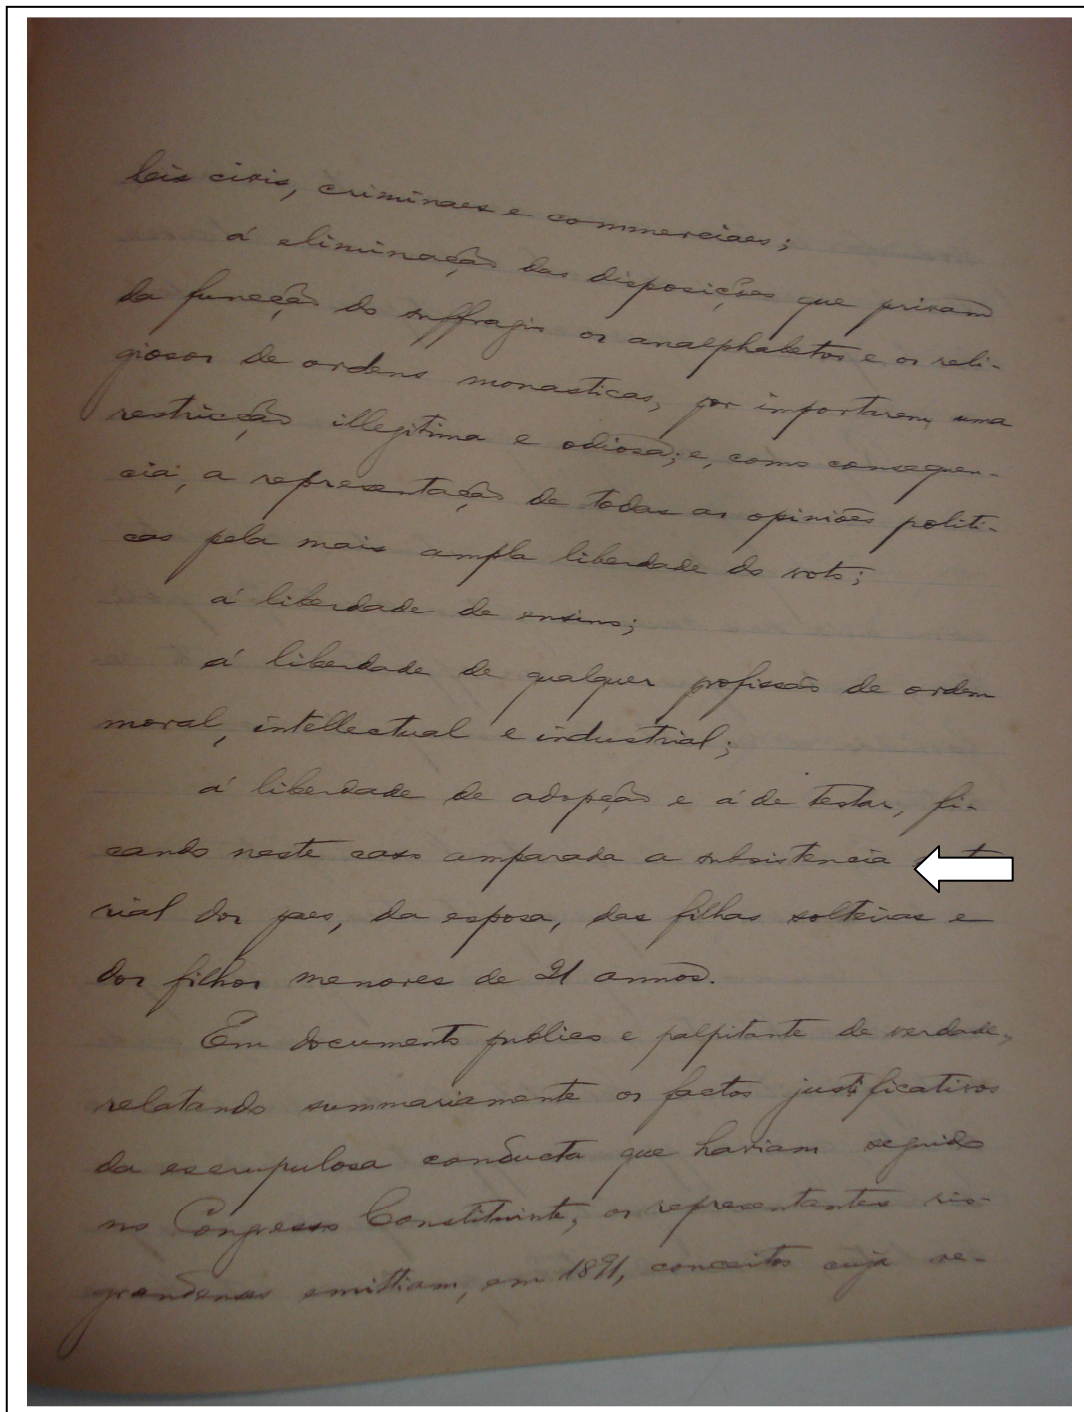 leis civis, criminaes e commerciaes;
á eliminação das disposições que privam
da funcção do suffragio os analphabetos e os reli-
giosos de ordens monasticas, por importarem uma
restricção illegitima e odiosa; e, como consequen-
cia, a representação de todas as opiniões politi-
cas pela mais ampla liberdade do voto;
á liberdade de ensino;
á liberdade de qualquer profissão de ordem
moral, intellectual e industrial;
á liberdade de adopção e á de testar, fi-
cando neste caso amparada a subsistencia
rial dos paes, da esposa, das filhas solteiras e
dos filhos menores de 21 annos.
Em documento publico e palpitante de verdade,
relatando summariamente os factos justificativos
da escrupulosa conducta que haviam seguido
no Congresso Constituinte, os representantes rio-
grandenses emittiam, em 1891, conceitos cuja re-